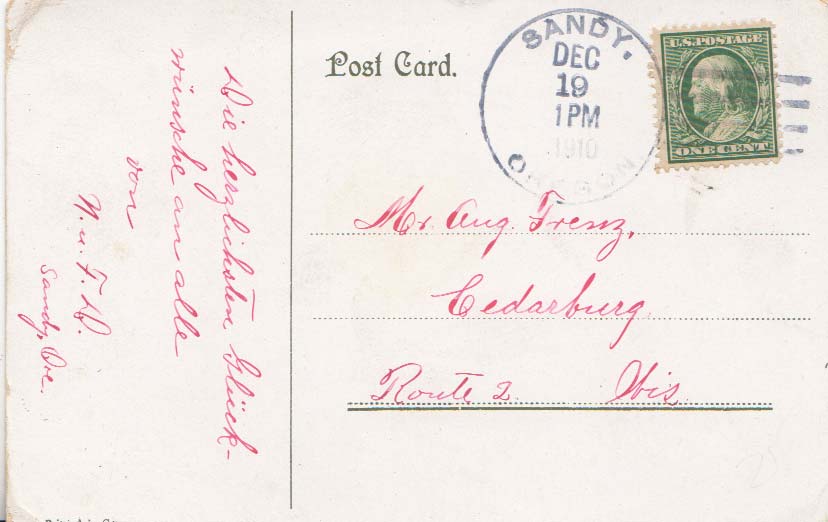 Die herzlichsten Glück-
wünsche an alle
von
W. u. F. D.
Sandy, Ore.
Post Card.
SANDY,
DEC
19
1PM
1910
OREGON
U.S. POSTAGE
ONE CENT
Mr. Aug. Frenz,
Cedarburg
Route 2 Wis